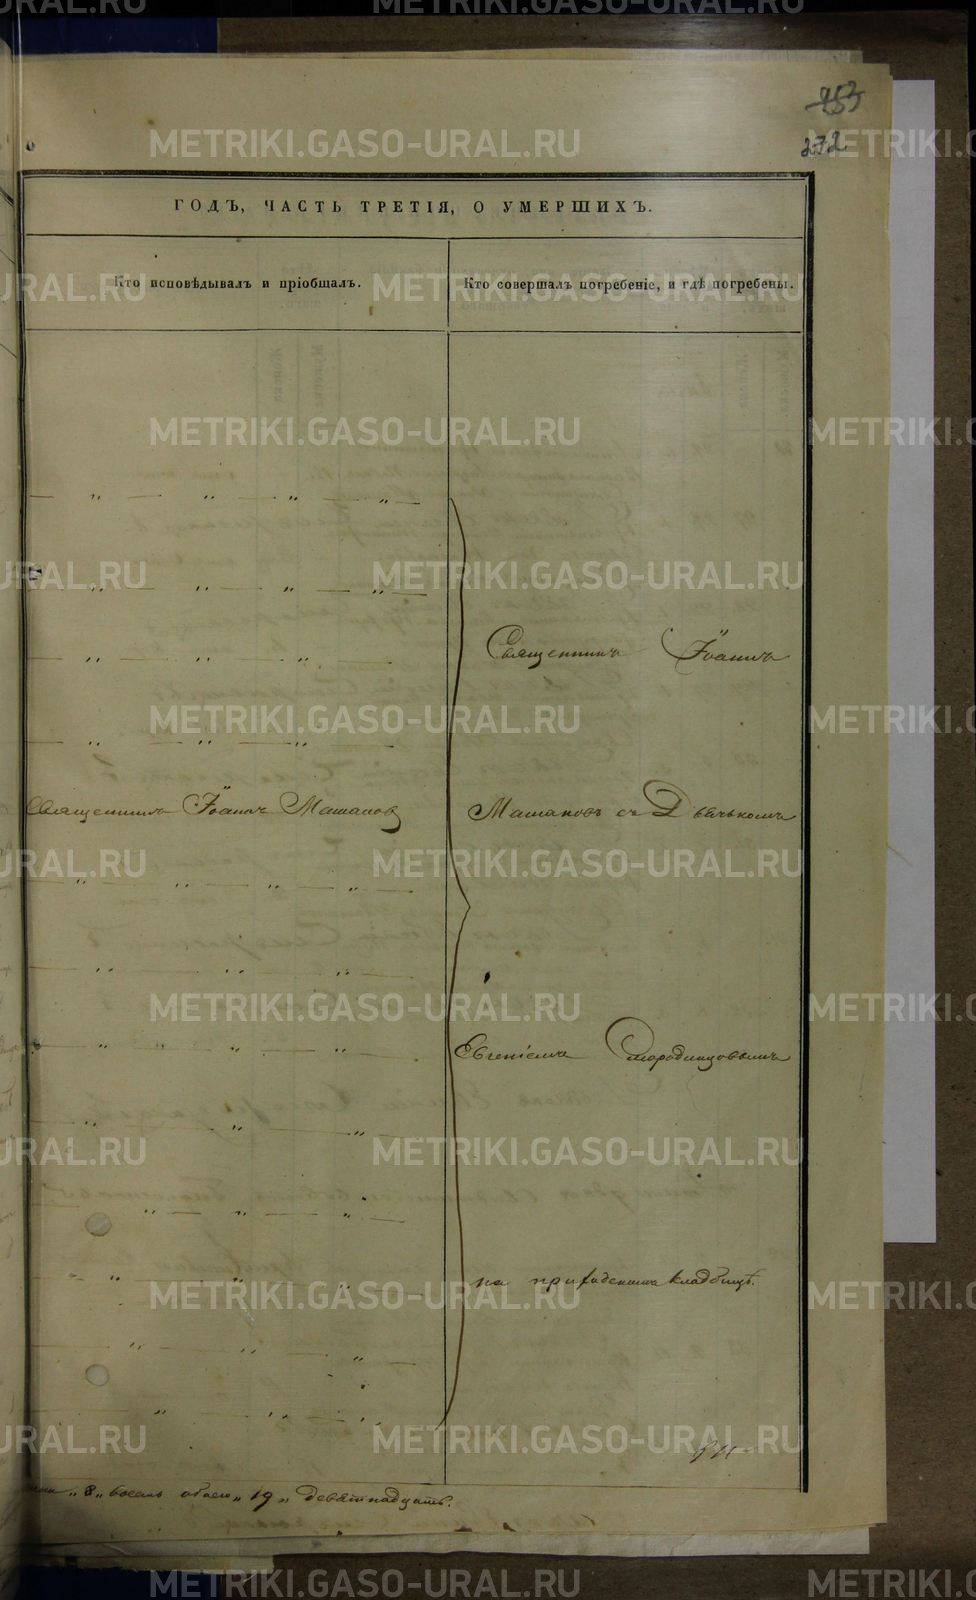 453
272
ГОДЪ, ЧАСТЬ ТРЕТІЯ, О УМЕРШИХЪ.
Кто исповѣдывалъ и пріобщалъ.
Кто совершалъ погребеніе, и гдѣ погребены.
— „ — „ — „ — „ —
— „ — „ — „ — „ —
— „ — „ — „ —
Священникъ Іоаннъ
— „ — „ — „ —
Священникъ Іоаннъ Машановъ
Машановъ съ Дьячькомъ
— „ — „ — „ — „ —
— „ — „ — „ —
Евгеніемъ Смородинцовымъ
— „ — „ — „ —
— „ — „ — „ —
— „ — „ — „ —
— „ — „ — „ —
на приходскомъ кладбищѣ.
— „ — „ — „ —
— „ — „ — „ —
„ 8 „ восемь обоего „ 19 „ девятнадцать.
METRIKI.GASO-URAL.RU